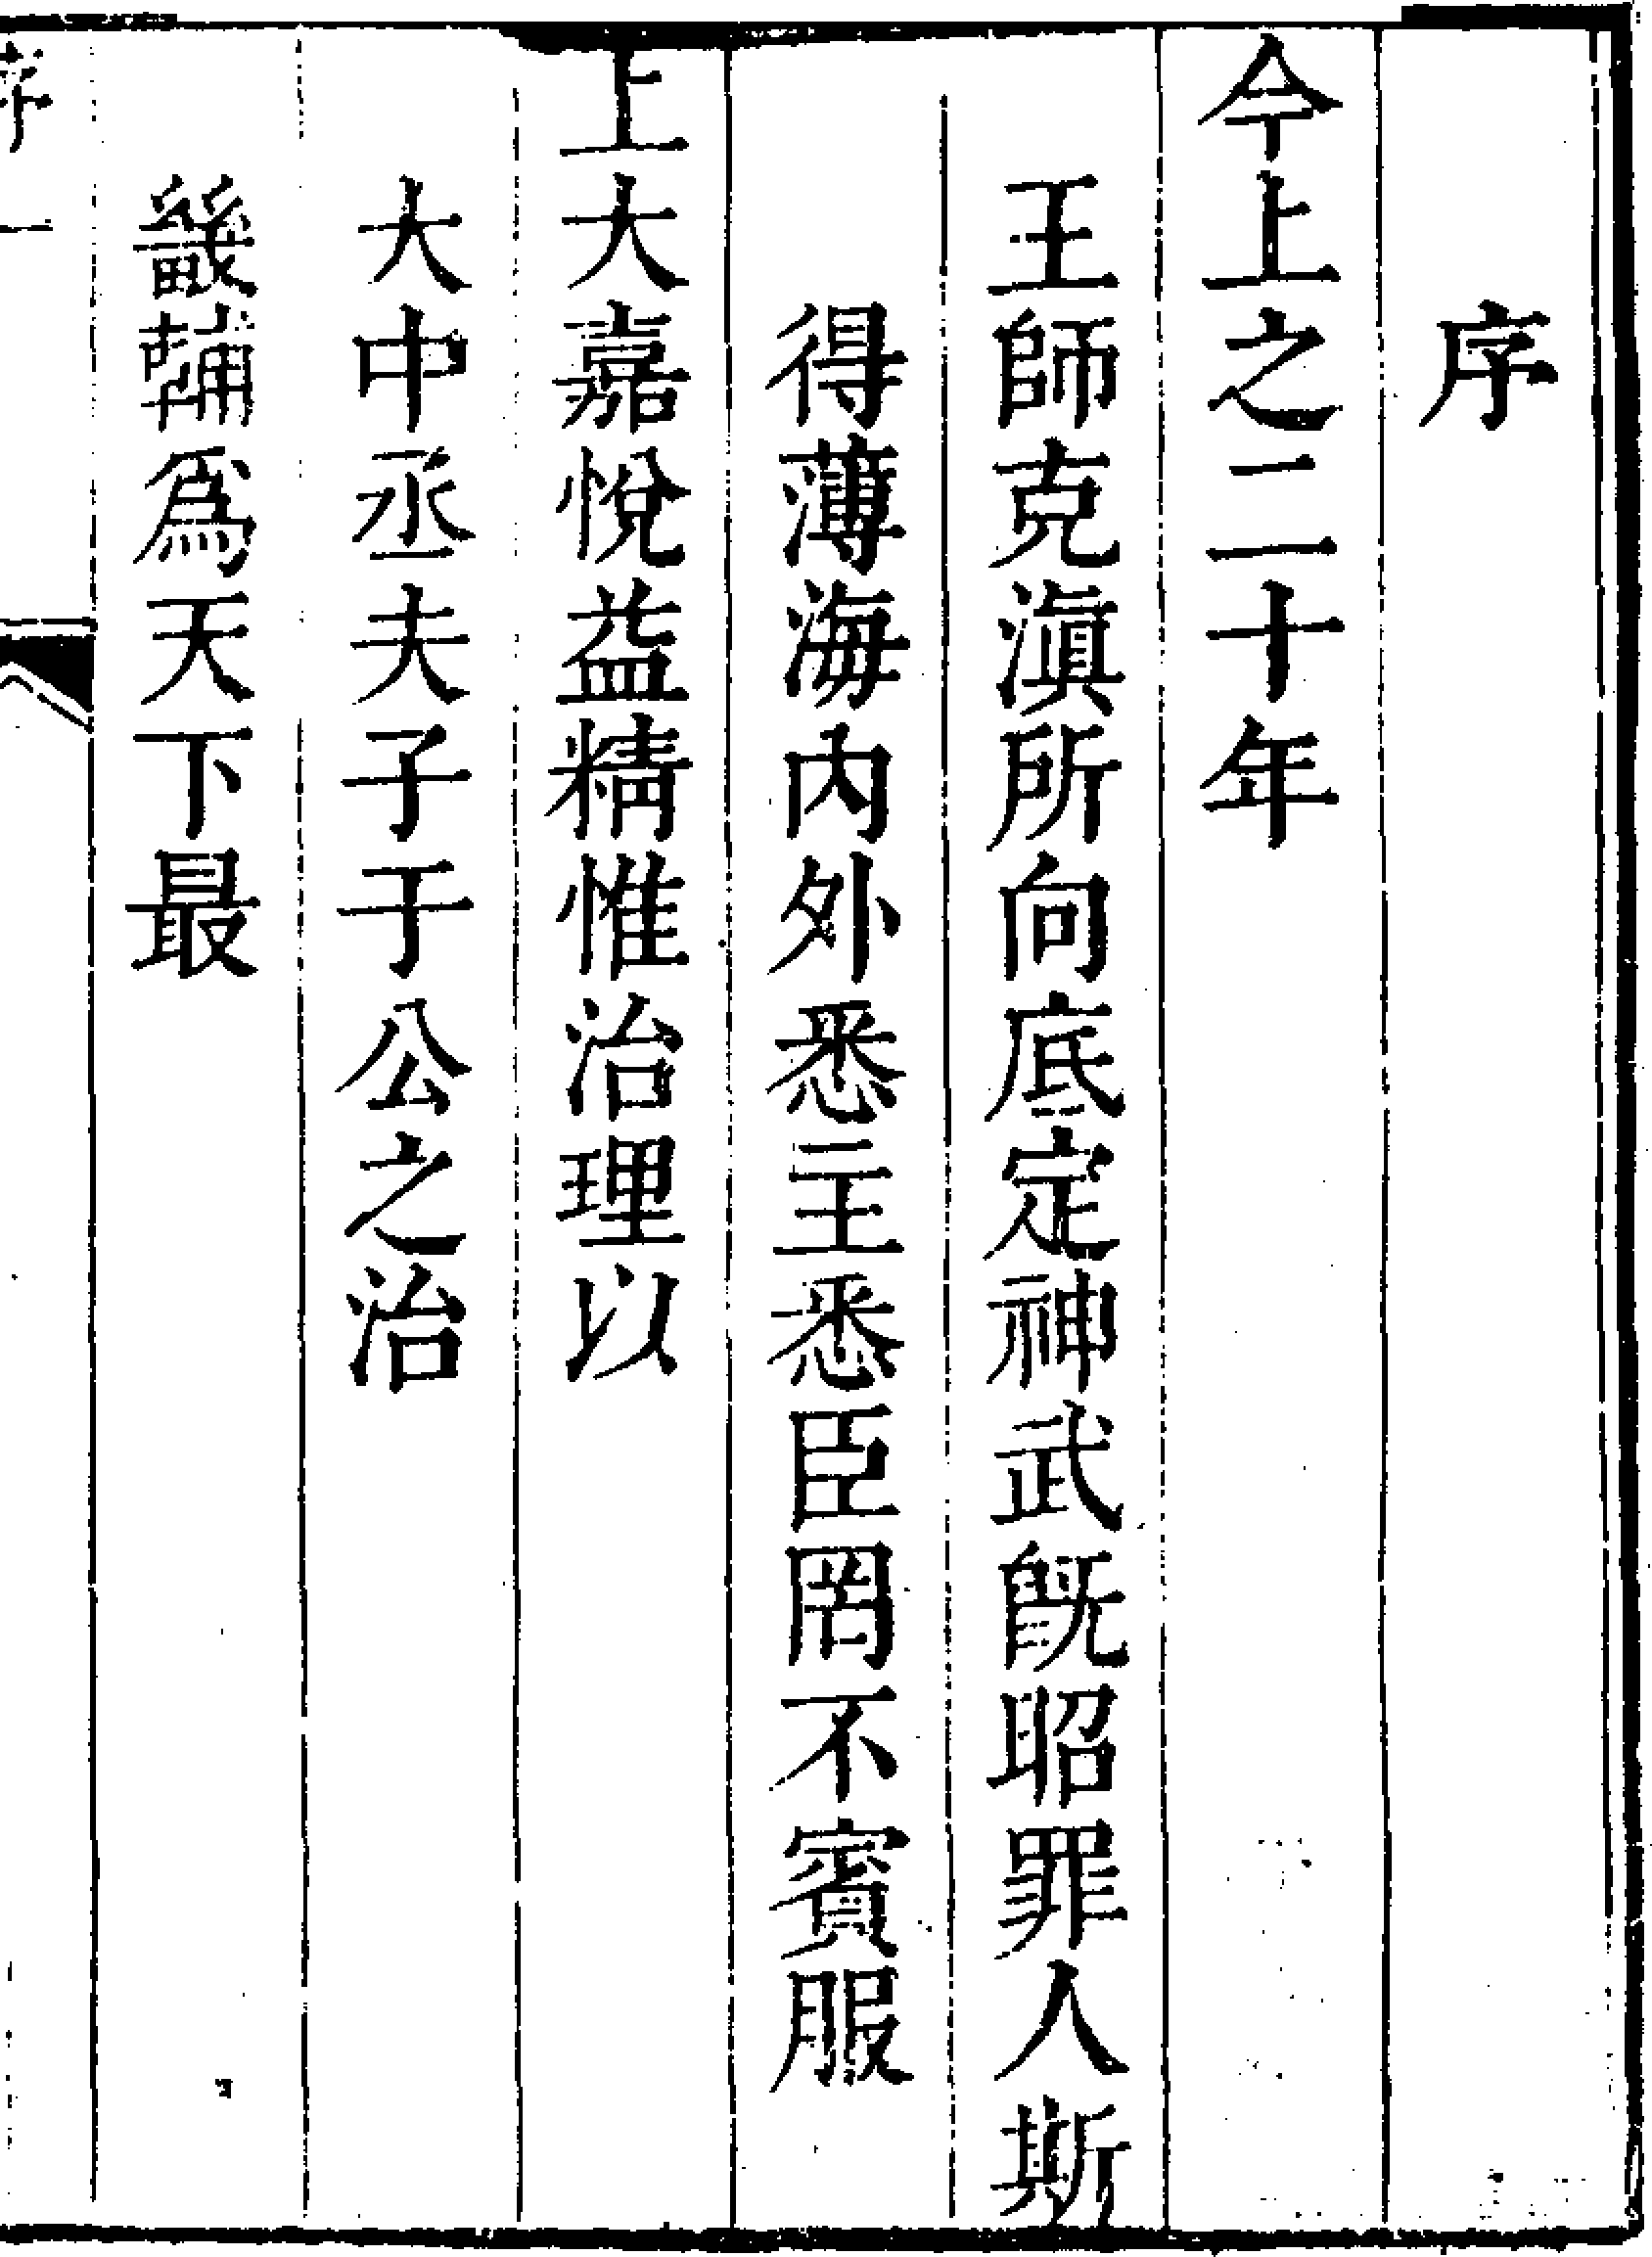 序
今上之二十年
王師克滇所向底定神武旣昭罪人斯
得薄海內外悉主悉臣罔不賓服
上大嘉悅益精惟治理以
大中丞夫子于公之治
畿輔爲天下最
序 一